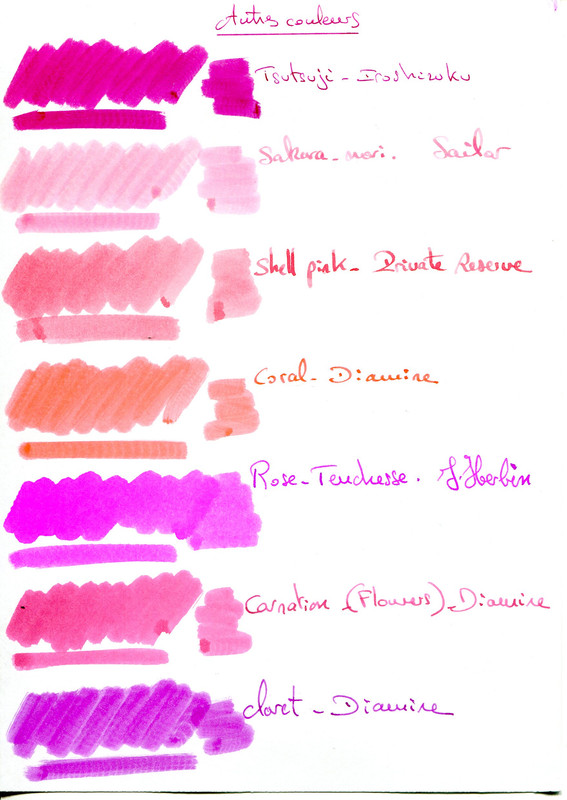 Autres couleurs
Tsutsuji - Iroshizuku
Sakura - mori. Sailor
Shell pink - Private Reserve
Coral - Diamine
Rose - Tendresse. J. Herbin
Carnation - (Flowers) - Diamine
claret - Diamine